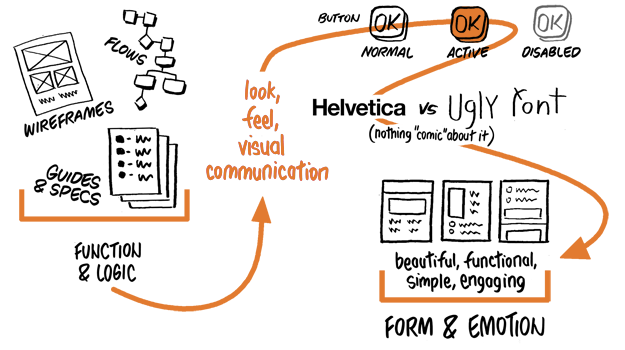 FLOWS
WIREFRAMES
GUIDES
& SPECS
FUNCTION
& LOGIC
look,
feel,
visual
communication
BUTTON
OK OK OK
NORMAL ACTIVE DISABLED
Helvetica vs UglY Font
(nothing "comic" about it)
beautiful, functional,
simple, engaging
FORM & EMOTION